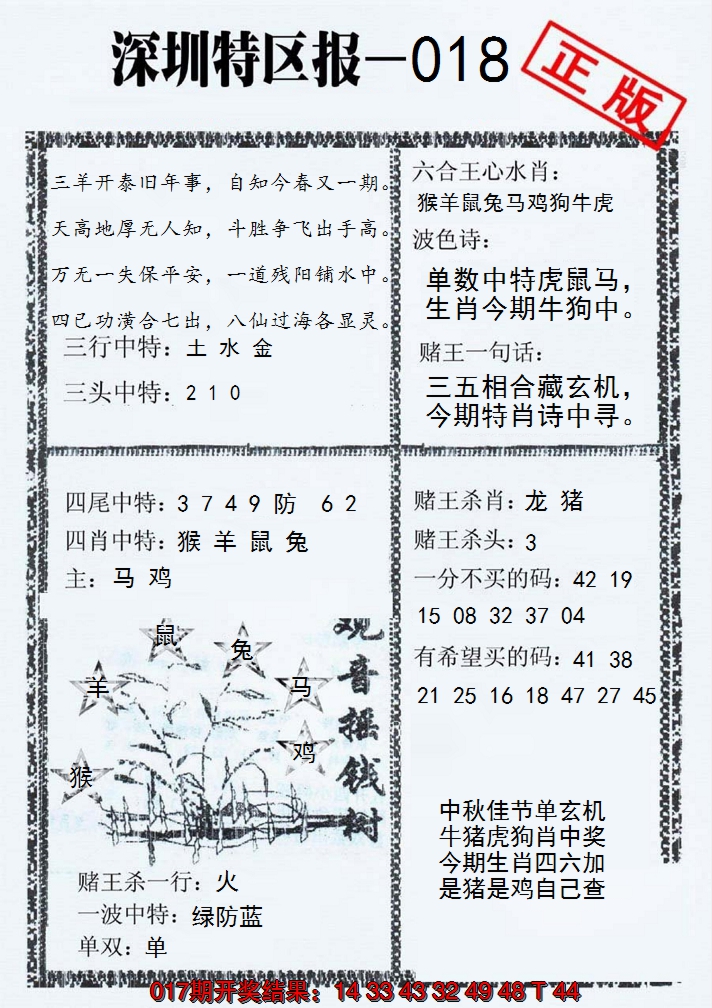 深圳特区报—018
正版
三羊开泰旧年事，自知今春又一期。
天高地厚无人知，斗胜争飞出手高。
万无一失保平安，一道残阳铺水中。
四已功潢合七出，八仙过海各显灵。
三行中特：土 水 金
三头中特：2 1 0
六合王心水肖：
猴羊鼠兔马鸡狗牛虎
波色诗：
单数中特虎鼠马，
生肖今期牛狗中。
赌王一句话：
三五相合藏玄机，
今期特肖诗中寻。
四尾中特：3 7 4 9 防 6 2
四肖中特：猴 羊 鼠 兔
主：马 鸡
鼠
兔
羊
马
鸡
猴
观音摇钱树
赌王杀一行：火
一波中特：绿防蓝
单双：单
赌王杀肖：龙 猪
赌王杀头：3
一分不买的码：42 19
15 08 32 37 04
有希望买的码：41 38
21 25 16 18 47 27 45
中秋佳节单玄机
牛猪虎狗肖中奖
今期生肖四六加
是猪是鸡自己查
017期开奖结果：14 33 43 32 49 48 T 44